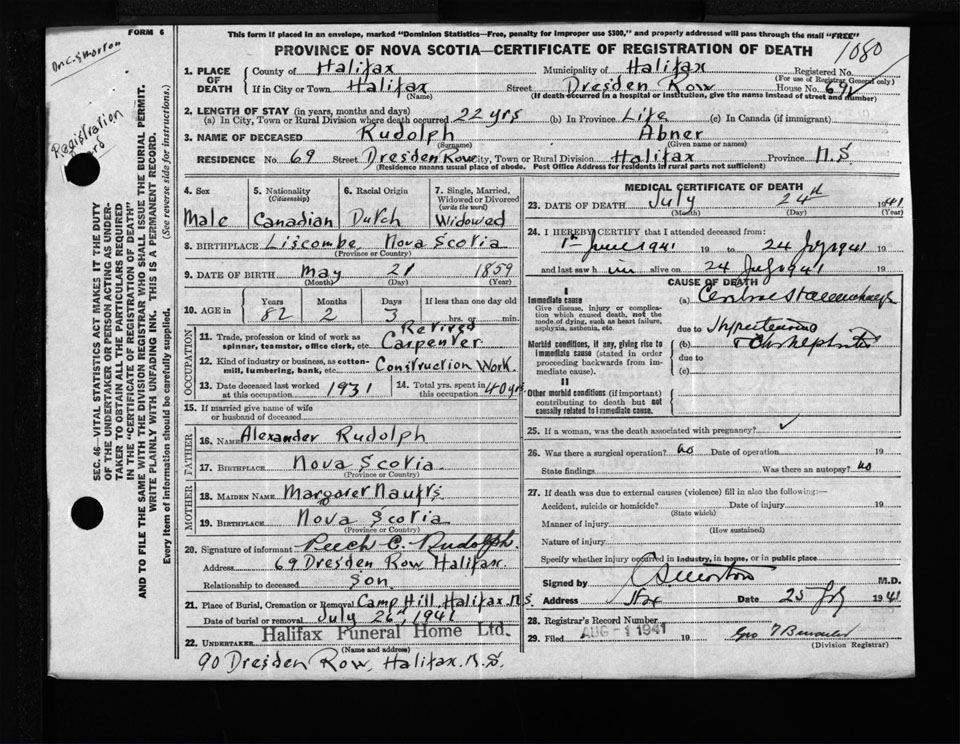 FORM 6
This form if placed in an envelope, marked "Dominion Statistics—Free, penalty for improper use $300," and properly addressed will pass through the mail "FREE"
PROVINCE OF NOVA SCOTIA—CERTIFICATE OF REGISTRATION OF DEATH
1080
Dr. C. S. Morton
Registration
SEC. 46—VITAL STATISTICS ACT MAKES IT THE DUTY
OF THE UNDERTAKER OR PERSON ACTING AS UNDER-
TAKER TO OBTAIN ALL THE PARTICULARS REQUIRED
IN THE "CERTIFICATE OF REGISTRATION OF DEATH"
AND TO FILE THE SAME WITH THE DIVISION REGISTRAR WHO SHALL ISSUE THE BURIAL PERMIT.
WRITE PLAINLY WITH UNFADING INK. THIS IS A PERMANENT RECORD.
Every item of information should be carefully supplied. (See reverse side for instructions.)
1. PLACE OF DEATH County of Halifax Municipality of Halifax Registered No.
(For use of Registrar General only)
If in City or Town Halifax Street Dresden Row House No. 69
(Name) (If death occurred in a hospital or institution, give the name instead of street and number)
2. LENGTH OF STAY (in years, months and days)
(a) In City, Town or Rural Division where death occurred 22 yrs (b) In Province Life (c) In Canada (if immigrant)
3. NAME OF DECEASED Rudolph Abner
(Surname) (Given name or names)
RESIDENCE No. 69 Street Dresden Row City, Town or Rural Division Halifax Province N.S
(Residence means usual place of abode. Post Office Address for residents in rural parts not sufficient)
4. Sex 5. Nationality (Citizenship) 6. Racial Origin 7. Single, Married, Widowed or Divorced (write the word)
Male Canadian Dutch Widowed
8. BIRTHPLACE Liscombe, Nova Scotia
(Province or Country)
9. DATE OF BIRTH May 21 1859
(Month) (Day) (Year)
10. AGE in Years Months Days If less than one day old
82 2 3 hrs. or min.
OCCUPATION
11. Trade, profession or kind of work as spinner, teamster, office clerk, etc. Retired Carpenter
12. Kind of industry or business, as cotton-mill, lumbering, bank, etc. Construction Work.
13. Date deceased last worked at this occupation 1931 14. Total yrs. spent in this occupation 40 yrs.
15. If married give name of wife or husband of deceased
FATHER
16. NAME Alexander Rudolph
17. BIRTHPLACE Nova Scotia
(Province or Country)
MOTHER
18. MAIDEN NAME Margaret
19. BIRTHPLACE Nova Scotia
(Province or Country)
20. Signature of informant C. Rudolph
Address 69 Dresden Row Halifax.
Relationship to deceased Son
21. Place of Burial, Cremation or Removal Camp Hill, Halifax N.S.
Date of burial or removal July 26th, 1941
22. UNDERTAKER Halifax Funeral Home Ltd.
(Name and address)
90 Dresden Row, Halifax. N.S.
MEDICAL CERTIFICATE OF DEATH
23. DATE OF DEATH July 24th 1941
(Month) (Day) (Year)
24. I HEREBY CERTIFY that I attended deceased from:
1st June 1941 19 to 24 July 1941 19
and last saw him alive on 24 July 1941 19
CAUSE OF DEATH
I
Immediate cause (a)
Give disease, injury or complication which caused death, not the mode of dying, such as heart failure, asphyxia, asthenia, etc.
due to
Morbid conditions, if any, giving rise to immediate cause (stated in order proceeding backwards from immediate cause). (b)
due to
(c)
II
Other morbid conditions (if important) contributing to death but not causally related to immediate cause.
25. If a woman, was the death associated with pregnancy? ✓
26. Was there a surgical operation? no Date of operation 19
State findings Was there an autopsy? no
27. If death was due to external causes (violence) fill in also the following:—
Accident, suicide or homicide? Date of injury 19
(State which)
Manner of injury
(How sustained)
Nature of injury
Specify whether injury occurred in industry, in home, or in public place
Signed by C S Morton M.D.
Address Hfx Date 25 July 1941
28. Registrar's Record Number
29. Filed AUG - 1 1941 19
(Division Registrar)